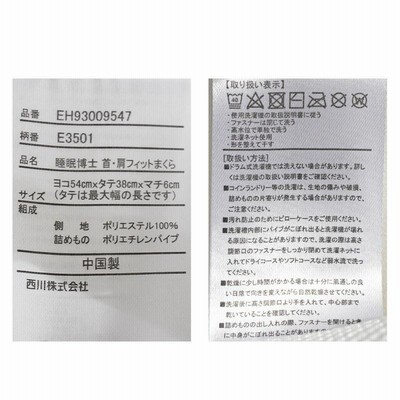 品番 EH93009547
柄番 E3501
品名 睡眠博士 首・肩フィットまくら
サイズ ヨコ54cm×タテ38cm×マチ6cm
(タテは最大幅の長さです)
組成
側 地 ポリエステル100%
詰めもの ポリエチレンパイプ
中国製
西川株式会社
【取り扱い表示】
40
・使用洗濯機の取扱説明書に従う
・ファスナーは閉じて洗う
・高水位で単独で洗う
・洗濯ネット使用
・形を整えて干す
[取扱い方法]
■ドラム式洗濯機では洗えない場合があります。詳し
くは洗濯機の取扱説明書をご確認ください。
■コインランドリー等の洗濯は、生地の傷みや破損、
詰めものの片寄りが発生する場合がありますので、
ご使用にならないでください。
■汚れ防止のためにピローケースをご使用ください。
■洗濯槽内部にパイプがこぼれ出ると洗濯機が壊れ
る原因になることがありますので、洗濯の際は高さ
調節口のファスナーをしっかり閉めて洗濯ネットに
入れてドライコースやソフトコースなど弱水流で洗っ
てください。
■乾燥に少し時間がかかる場合は十分に風通しの良
い日陰で向きを変えながら自然乾燥させてください。
■洗濯後に高さ調節口より手を入れて、中心部まで
乾いていることを確認してください。
■詰めものの出し入れの際、ファスナーを開けるとき
に中身がこぼれ出ることが